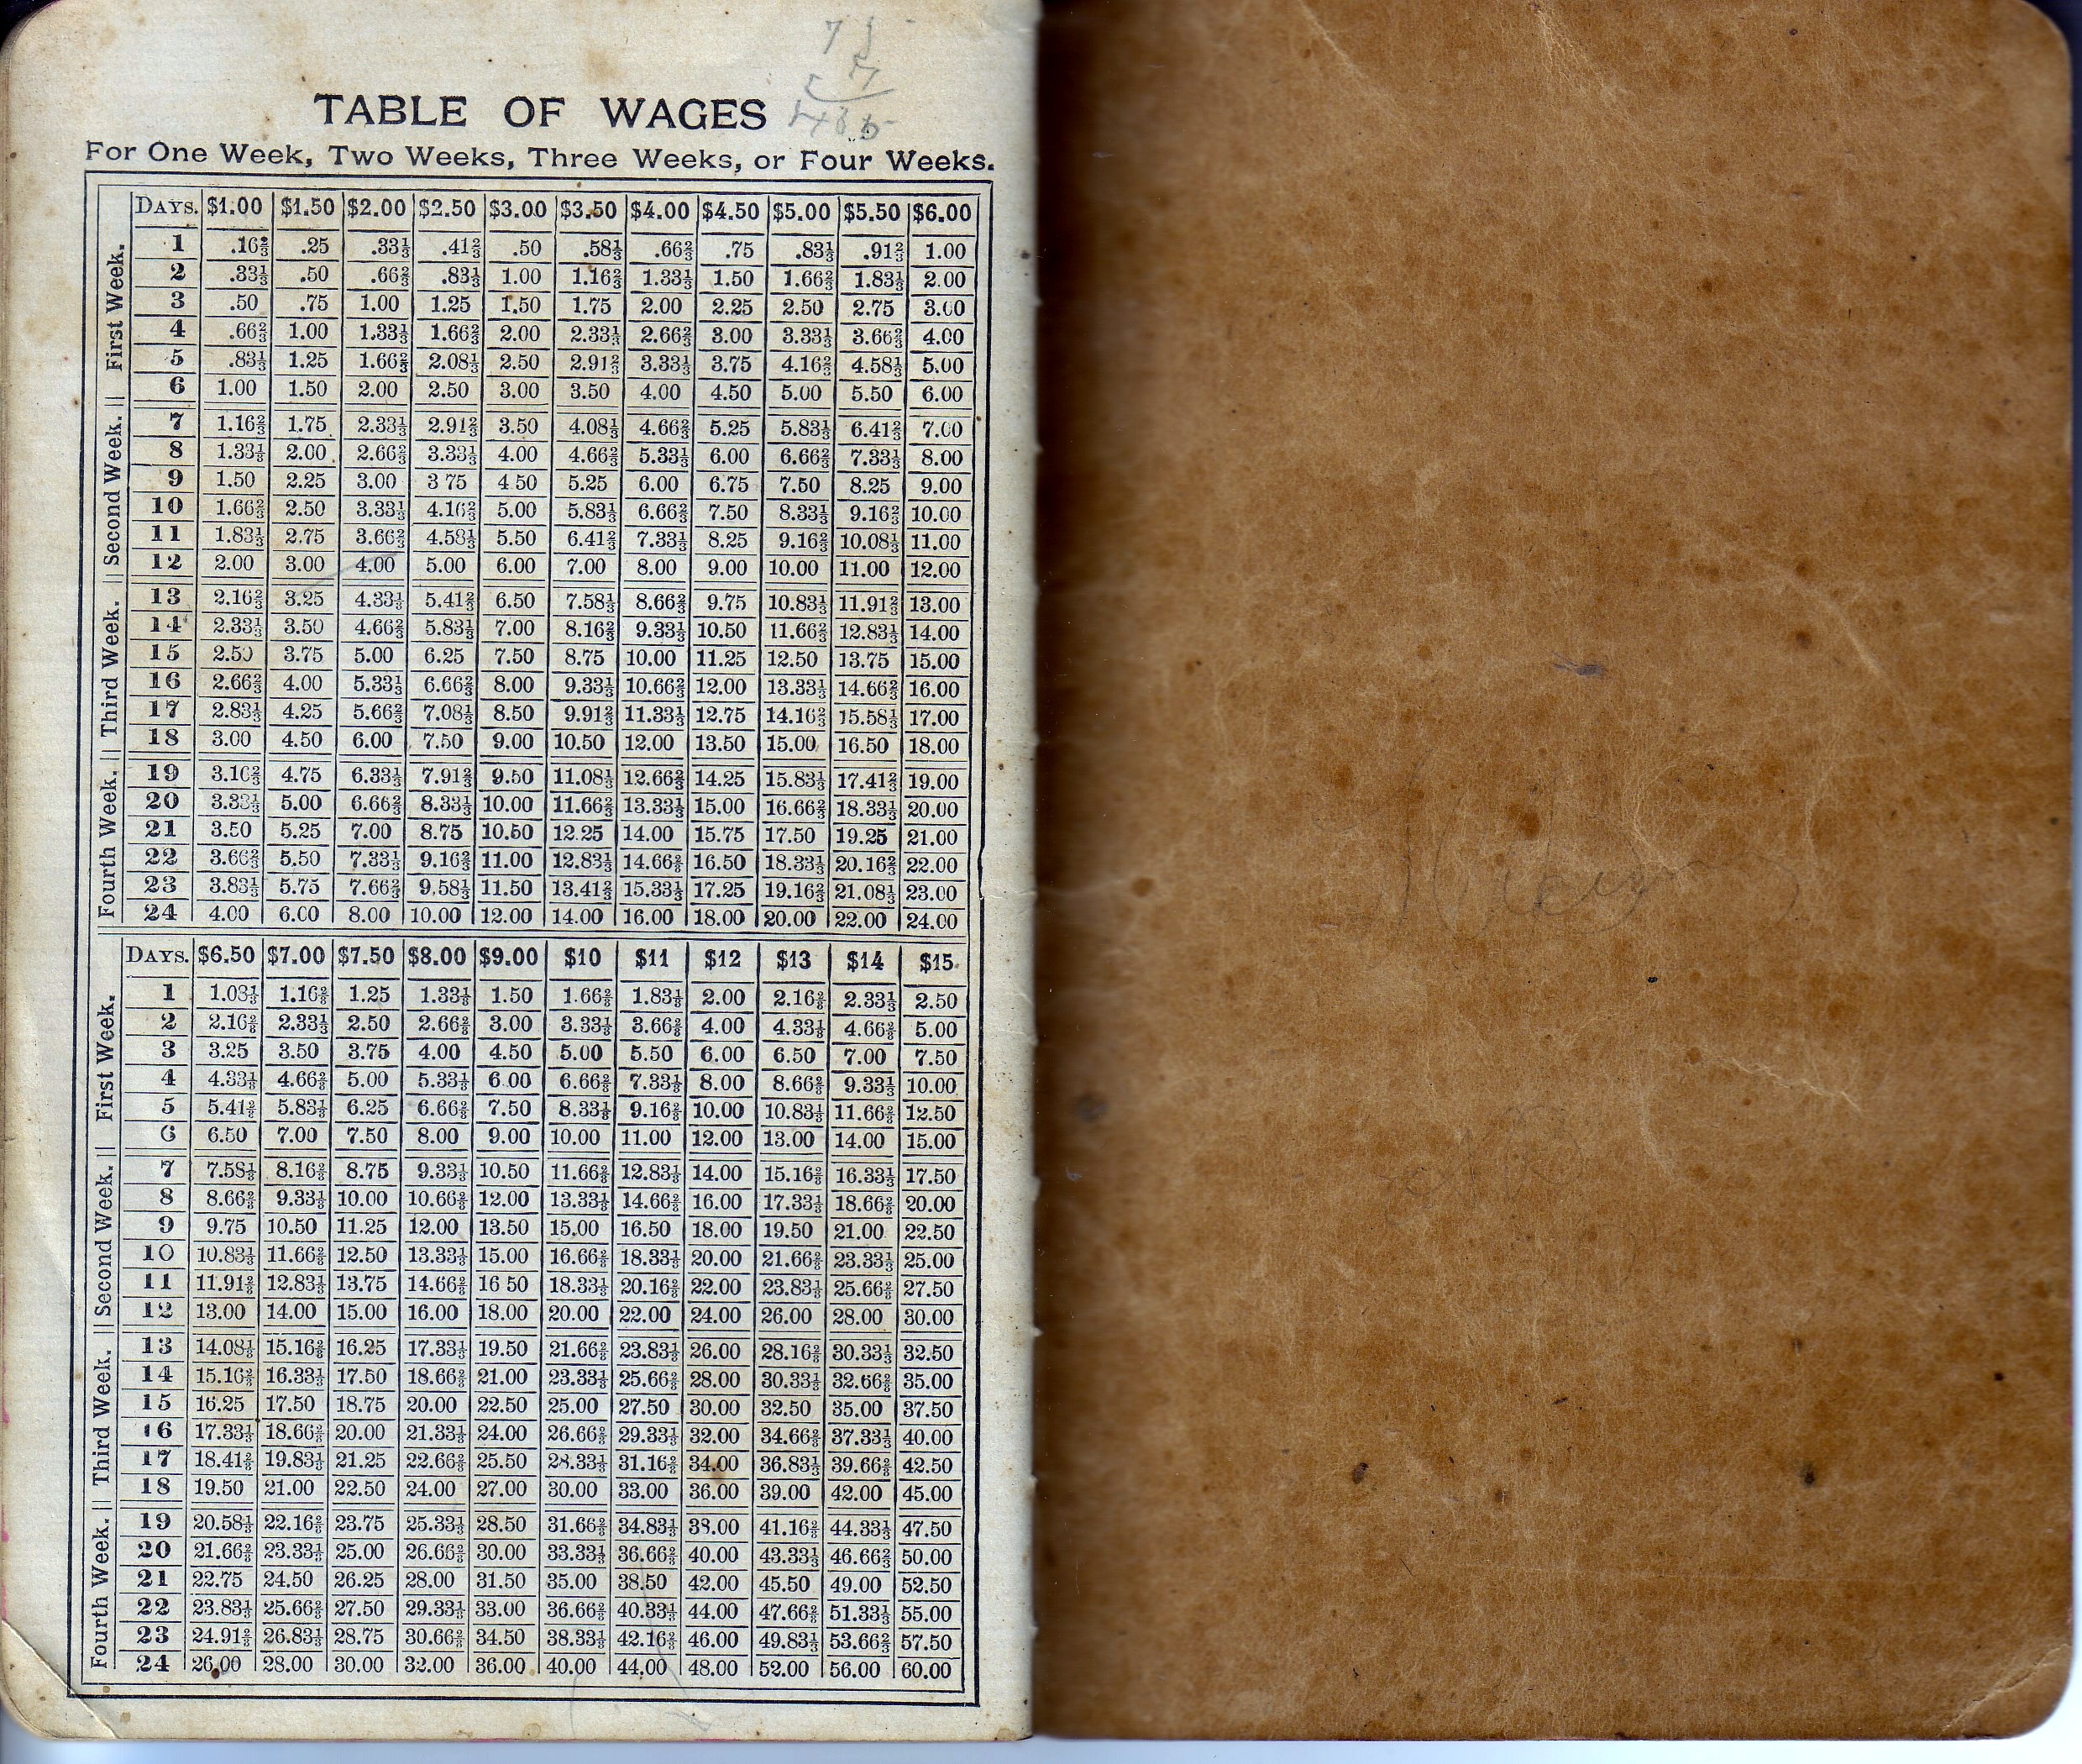 TABLE OF WAGES
For One Week, Two Weeks, Three Weeks, or Four Weeks.
DAYS. $1.00 $1.50 $2.00 $2.50 $3.00 $3.50 $4.00 $4.50 $5.00 $5.50 $6.00
First Week.
1 .16⅔ .25 .33⅓ .41⅔ .50 .58⅓ .66⅔ .75 .83⅓ .91⅔ 1.00
2 .33⅓ .50 .66⅔ .83⅓ 1.00 1.16⅔ 1.33⅓ 1.50 1.66⅔ 1.83⅓ 2.00
3 .50 .75 1.00 1.25 1.50 1.75 2.00 2.25 2.50 2.75 3.00
4 .66⅔ 1.00 1.33⅓ 1.66⅔ 2.00 2.33⅓ 2.66⅔ 3.00 3.33⅓ 3.66⅔ 4.00
5 .83⅓ 1.25 1.66⅔ 2.08⅓ 2.50 2.91⅔ 3.33⅓ 3.75 4.16⅔ 4.58⅓ 5.00
6 1.00 1.50 2.00 2.50 3.00 3.50 4.00 4.50 5.00 5.50 6.00
Second Week.
7 1.16⅔ 1.75 2.33⅓ 2.91⅔ 3.50 4.08⅓ 4.66⅔ 5.25 5.83⅓ 6.41⅔ 7.00
8 1.33⅓ 2.00 2.66⅔ 3.33⅓ 4.00 4.66⅔ 5.33⅓ 6.00 6.66⅔ 7.33⅓ 8.00
9 1.50 2.25 3.00 3 75 4 50 5.25 6.00 6.75 7.50 8.25 9.00
10 1.66⅔ 2.50 3.33⅓ 4.16⅔ 5.00 5.83⅓ 6.66⅔ 7.50 8.33⅓ 9.16⅔ 10.00
11 1.83⅓ 2.75 3.66⅔ 4.58⅓ 5.50 6.41⅔ 7.33⅓ 8.25 9.16⅔ 10.08⅓ 11.00
12 2.00 3.00 4.00 5.00 6.00 7.00 8.00 9.00 10.00 11.00 12.00
Third Week.
13 2.16⅔ 3.25 4.33⅓ 5.41⅔ 6.50 7.58⅓ 8.66⅔ 9.75 10.83⅓ 11.91⅔ 13.00
14 2.33⅓ 3.50 4.66⅔ 5.83⅓ 7.00 8.16⅔ 9.33⅓ 10.50 11.66⅔ 12.83⅓ 14.00
15 2.50 3.75 5.00 6.25 7.50 8.75 10.00 11.25 12.50 13.75 15.00
16 2.66⅔ 4.00 5.33⅓ 6.66⅔ 8.00 9.33⅓ 10.66⅔ 12.00 13.33⅓ 14.66⅔ 16.00
17 2.83⅓ 4.25 5.66⅔ 7.08⅓ 8.50 9.91⅔ 11.33⅓ 12.75 14.16⅔ 15.58⅓ 17.00
18 3.00 4.50 6.00 7.50 9.00 10.50 12.00 13.50 15.00 16.50 18.00
Fourth Week.
19 3.16⅔ 4.75 6.33⅓ 7.91⅔ 9.50 11.08⅓ 12.66⅔ 14.25 15.83⅓ 17.41⅔ 19.00
20 3.33⅓ 5.00 6.66⅔ 8.33⅓ 10.00 11.66⅔ 13.33⅓ 15.00 16.66⅔ 18.33⅓ 20.00
21 3.50 5.25 7.00 8.75 10.50 12.25 14.00 15.75 17.50 19.25 21.00
22 3.66⅔ 5.50 7.33⅓ 9.16⅔ 11.00 12.83⅓ 14.66⅔ 16.50 18.33⅓ 20.16⅔ 22.00
23 3.83⅓ 5.75 7.66⅔ 9.58⅓ 11.50 13.41⅔ 15.33⅓ 17.25 19.16⅔ 21.08⅓ 23.00
24 4.00 6.00 8.00 10.00 12.00 14.00 16.00 18.00 20.00 22.00 24.00
DAYS. $6.50 $7.00 $7.50 $8.00 $9.00 $10 $11 $12 $13 $14 $15
First Week.
1 1.08⅓ 1.16⅔ 1.25 1.33⅓ 1.50 1.66⅔ 1.83⅓ 2.00 2.16⅔ 2.33⅓ 2.50
2 2.16⅔ 2.33⅓ 2.50 2.66⅔ 3.00 3.33⅓ 3.66⅔ 4.00 4.33⅓ 4.66⅔ 5.00
3 3.25 3.50 3.75 4.00 4.50 5.00 5.50 6.00 6.50 7.00 7.50
4 4.33⅓ 4.66⅔ 5.00 5.33⅓ 6.00 6.66⅔ 7.33⅓ 8.00 8.66⅔ 9.33⅓ 10.00
5 5.41⅔ 5.83⅓ 6.25 6.66⅔ 7.50 8.33⅓ 9.16⅔ 10.00 10.83⅓ 11.66⅔ 12.50
6 6.50 7.00 7.50 8.00 9.00 10.00 11.00 12.00 13.00 14.00 15.00
Second Week.
7 7.58⅓ 8.16⅔ 8.75 9.33⅓ 10.50 11.66⅔ 12.83⅓ 14.00 15.16⅔ 16.33⅓ 17.50
8 8.66⅔ 9.33⅓ 10.00 10.66⅔ 12.00 13.33⅓ 14.66⅔ 16.00 17.33⅓ 18.66⅔ 20.00
9 9.75 10.50 11.25 12.00 13.50 15.00 16.50 18.00 19.50 21.00 22.50
10 10.83⅓ 11.66⅔ 12.50 13.33⅓ 15.00 16.66⅔ 18.33⅓ 20.00 21.66⅔ 23.33⅓ 25.00
11 11.91⅔ 12.83⅓ 13.75 14.66⅔ 16 50 18.33⅓ 20.16⅔ 22.00 23.83⅓ 25.66⅔ 27.50
12 13.00 14.00 15.00 16.00 18.00 20.00 22.00 24.00 26.00 28.00 30.00
Third Week.
13 14.08⅓ 15.16⅔ 16.25 17.33⅓ 19.50 21.66⅔ 23.83⅓ 26.00 28.16⅔ 30.33⅓ 32.50
14 15.16⅔ 16.33⅓ 17.50 18.66⅔ 21.00 23.33⅓ 25.66⅔ 28.00 30.33⅓ 32.66⅔ 35.00
15 16.25 17.50 18.75 20.00 22.50 25.00 27.50 30.00 32.50 35.00 37.50
16 17.33⅓ 18.66⅔ 20.00 21.33⅓ 24.00 26.66⅔ 29.33⅓ 32.00 34.66⅔ 37.33⅓ 40.00
17 18.41⅔ 19.83⅓ 21.25 22.66⅔ 25.50 28.33⅓ 31.16⅔ 34.00 36.83⅓ 39.66⅔ 42.50
18 19.50 21.00 22.50 24.00 27.00 30.00 33.00 36.00 39.00 42.00 45.00
Fourth Week.
19 20.58⅓ 22.16⅔ 23.75 25.33⅓ 28.50 31.66⅔ 34.83⅓ 38.00 41.16⅔ 44.33⅓ 47.50
20 21.66⅔ 23.33⅓ 25.00 26.66⅔ 30.00 33.33⅓ 36.66⅔ 40.00 43.33⅓ 46.66⅔ 50.00
21 22.75 24.50 26.25 28.00 31.50 35.00 38.50 42.00 45.50 49.00 52.50
22 23.83⅓ 25.66⅔ 27.50 29.33⅓ 33.00 36.66⅔ 40.33⅓ 44.00 47.66⅔ 51.33⅓ 55.00
23 24.91⅔ 26.83⅓ 28.75 30.66⅔ 34.50 38.33⅓ 42.16⅔ 46.00 49.83⅓ 53.66⅔ 57.50
24 26.00 28.00 30.00 32.00 36.00 40.00 44.00 48.00 52.00 56.00 60.00